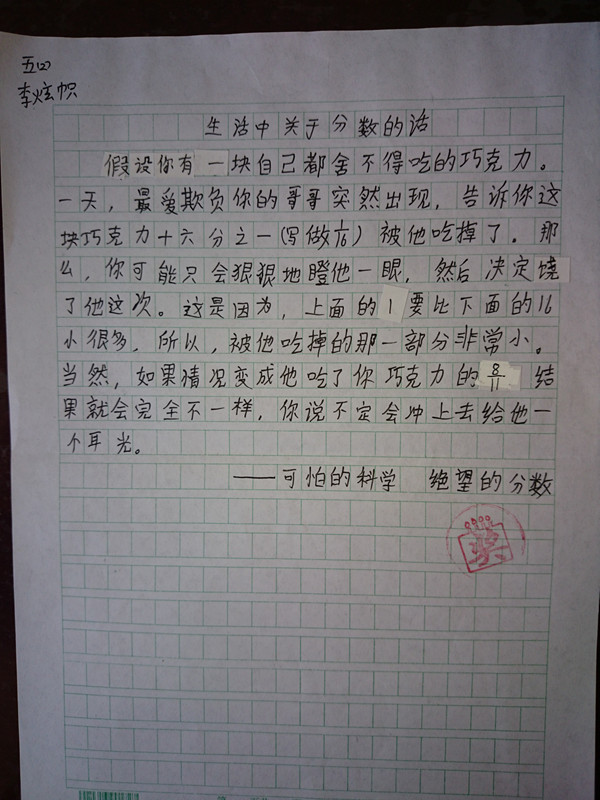 五(2)
李炫帜
生活中关于分数的话
假设你有一块自己都舍不得吃的巧克力。
一天，最爱欺负你的哥哥突然出现，告诉你这
块巧克力十六分之一(写做1/16)被他吃掉了。那
么，你可能只会狠狠地瞪他一眼，然后决定饶
了他这次。这是因为，上面的1要比下面的16
小很多，所以，被他吃掉的那一部分非常小。
当然，如果情况变成他吃了你巧克力的8/11结
果就会完全不一样，你说不定会冲上去给他一
个耳光。
——可怕的科学 绝望的分数